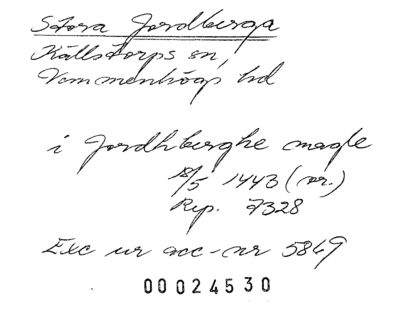 Stora Jordberga
Källstorps sn,
Vemmenhögs hd
i Jordhberghe magle
18/5 1443 (or.)
Rep. 7328
Exc ur acc-nr 5849
00024530